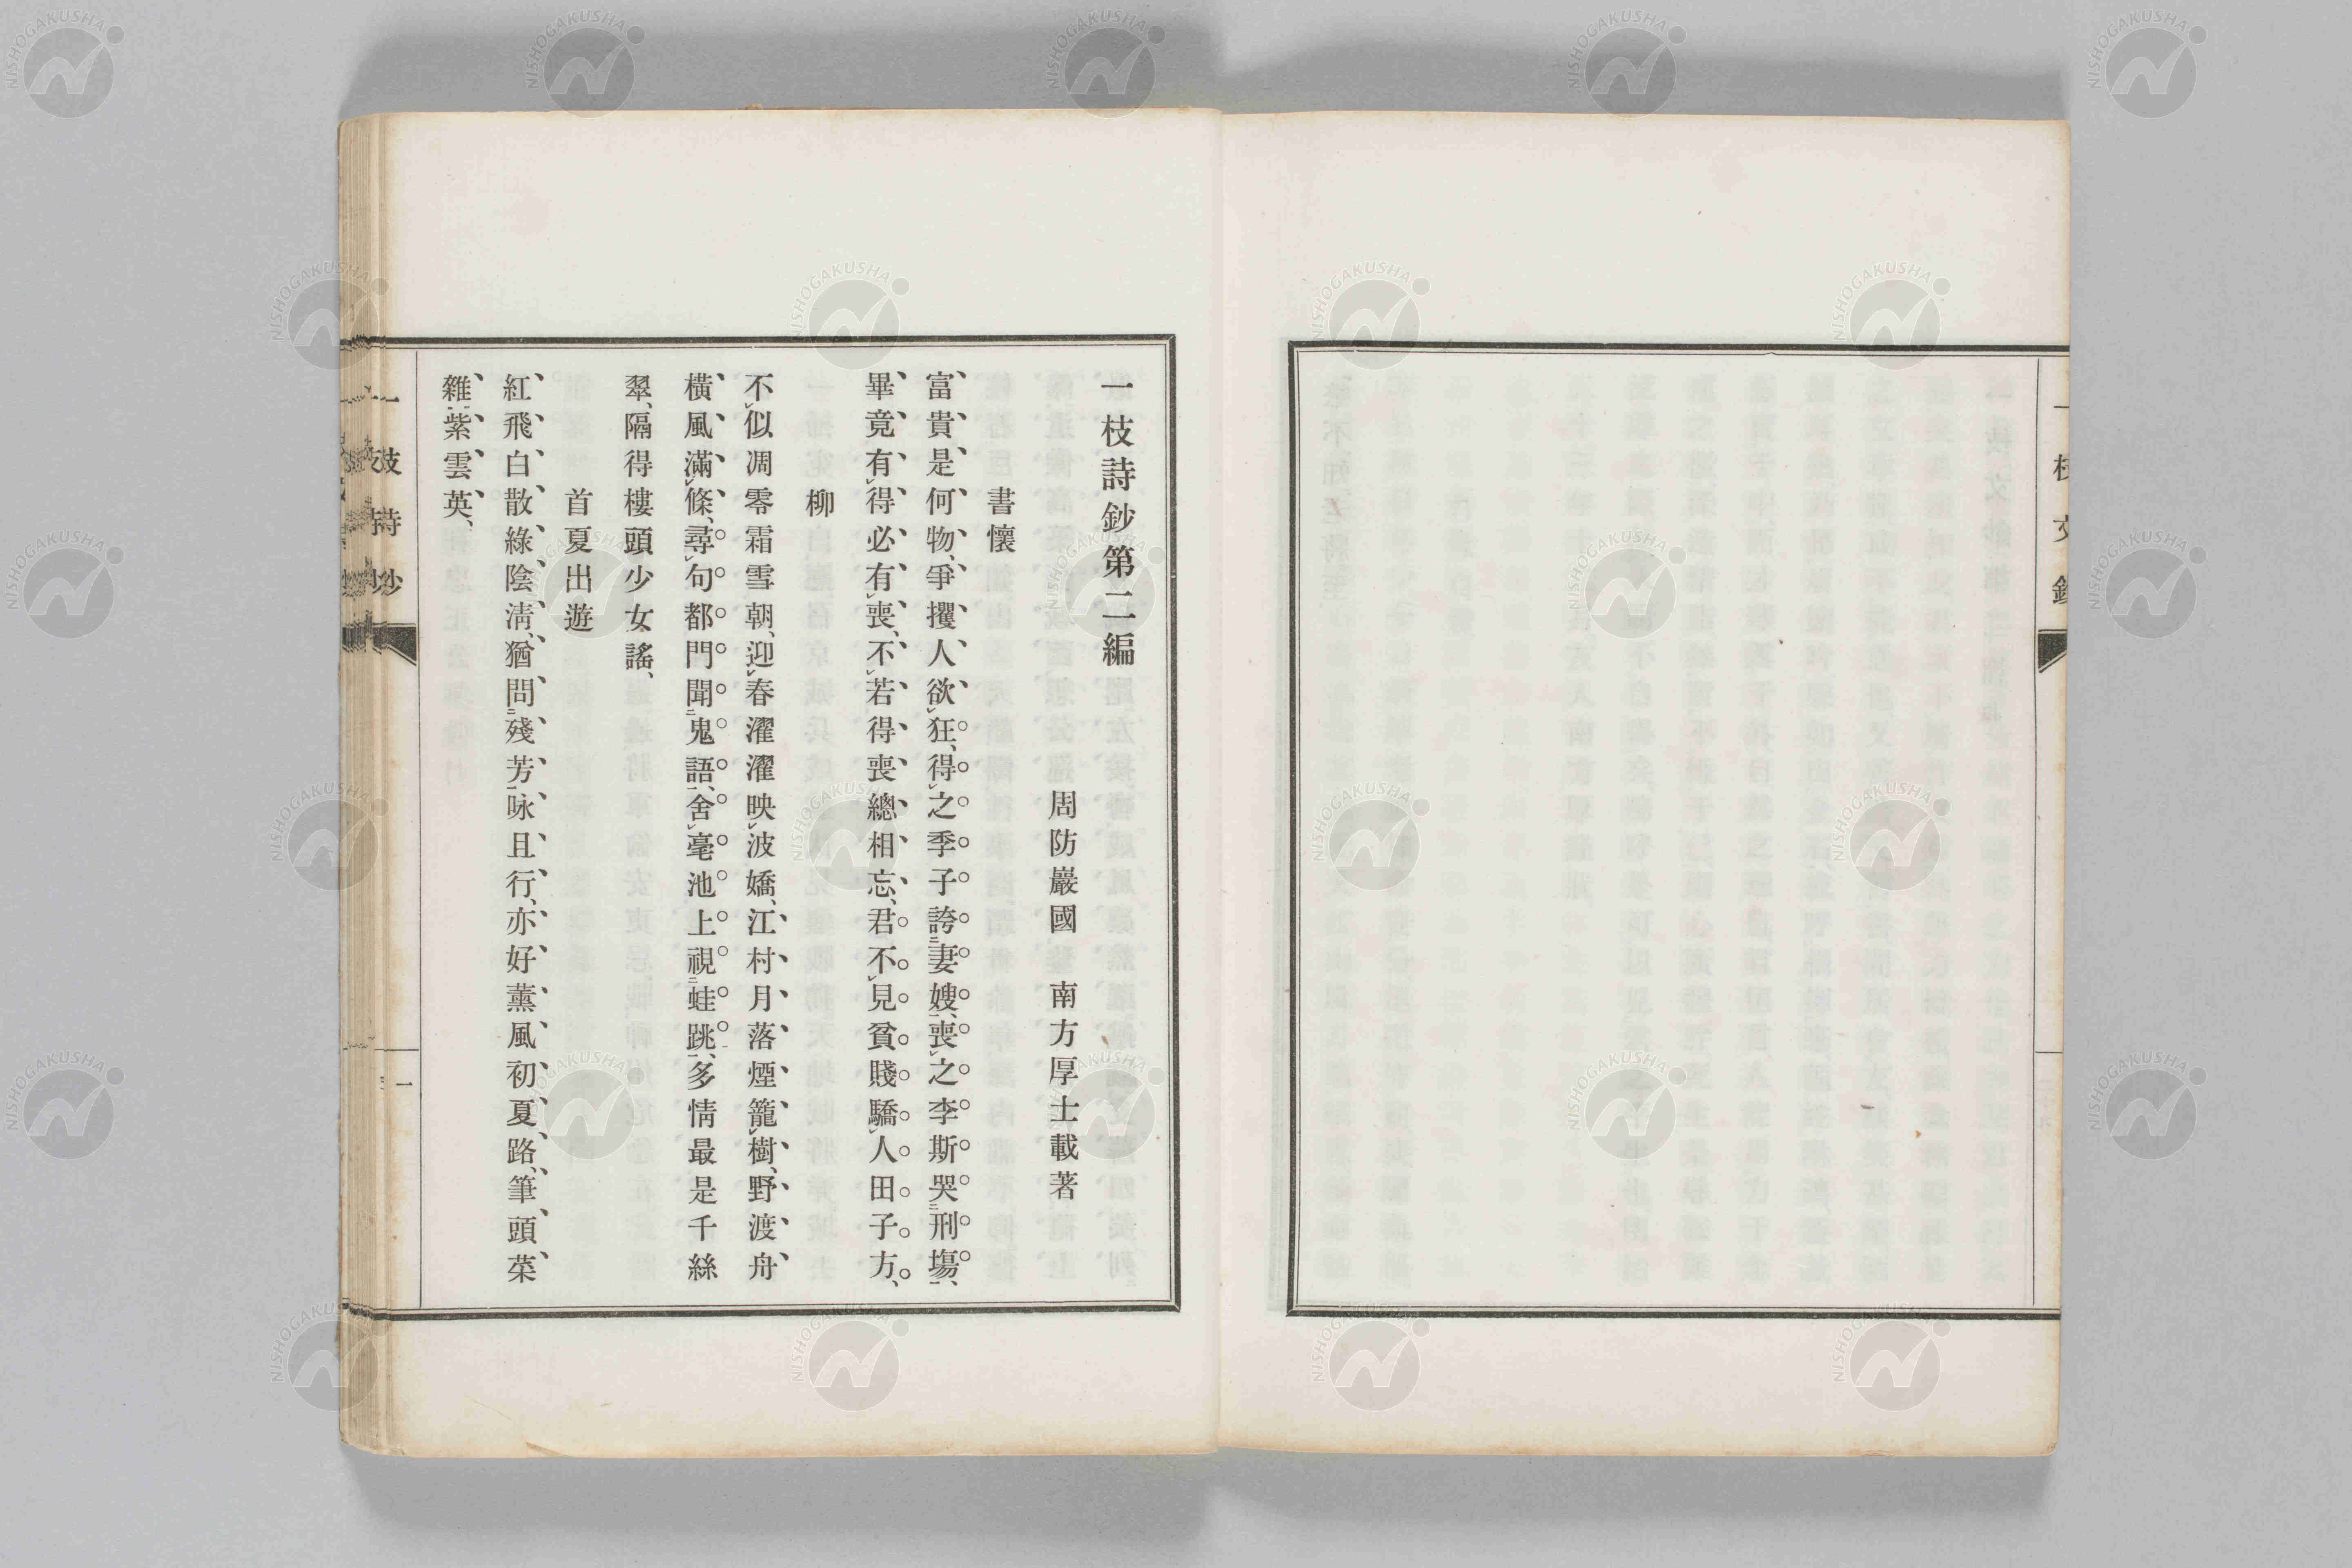 一枝詩鈔第二編
周防巖國　南方厚士載著
書懷
富貴是何物、爭攫人欲狂、得之季子誇妻嫂、喪之李斯哭刑塲、
畢竟有得必有喪、不若得喪總相忘、君不見貧賤驕人田子方、
柳
不似凋零霜雪朝、迎春濯濯映波嬌、江村月落煙籠樹、野渡舟
橫風滿條、尋句都門聞鬼語、舍毫池上視蛙跳、多情最是千絲
翠、隔得樓頭少女謠、
首夏出遊
紅飛白散綠陰淸、猶問殘芳咏且行、亦好薰風初夏路、筆頭菜
雜紫雲英、
一
NISHOGAKUSHA